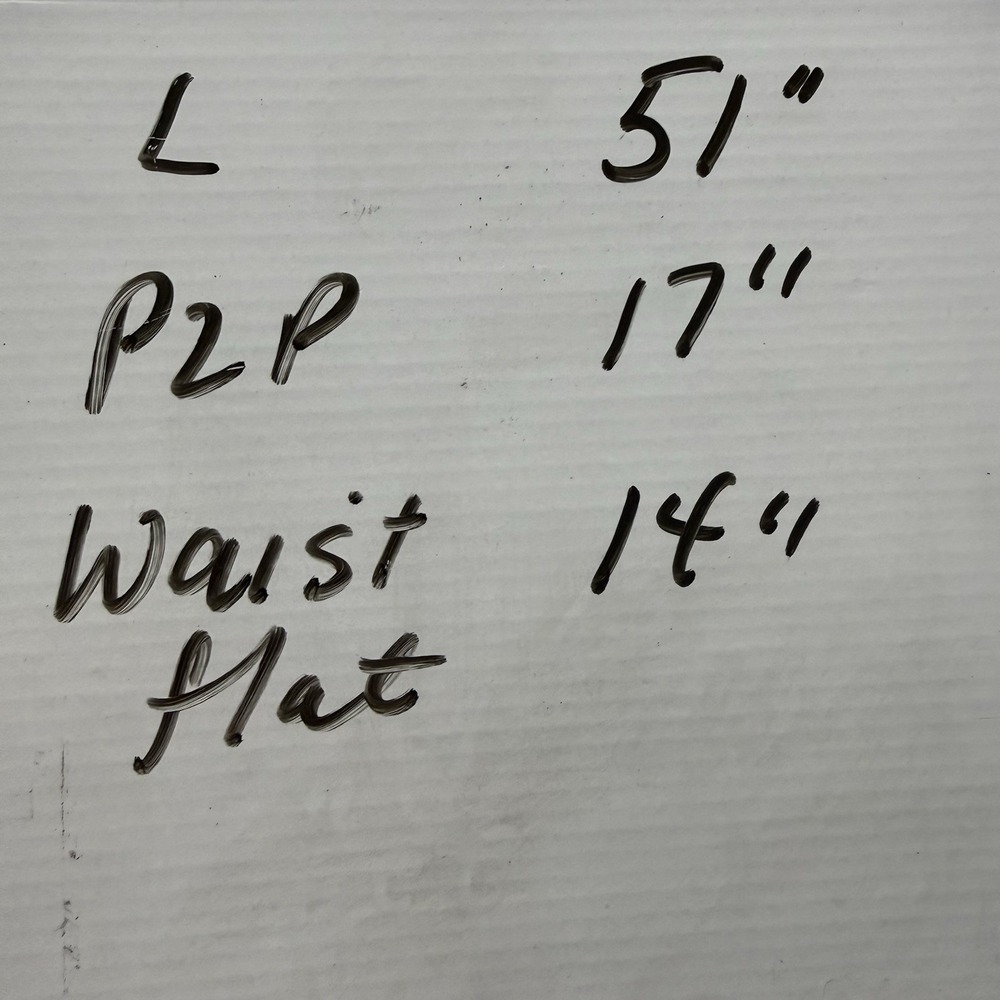 L 51"
P2P 17"
Waist 14"
flat